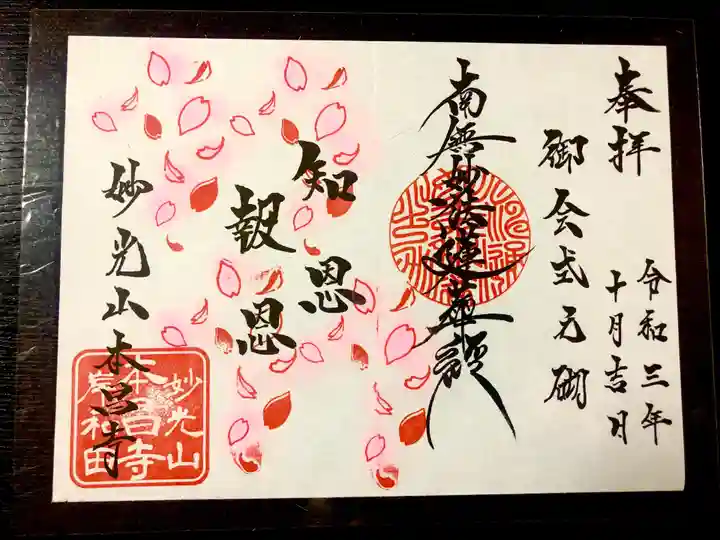 奉拝
令和三年
十月吉日
御会式之砌
南無妙法蓮華経
知恩
報恩
妙光山本昌寺
妙光山
本昌寺
岸和田